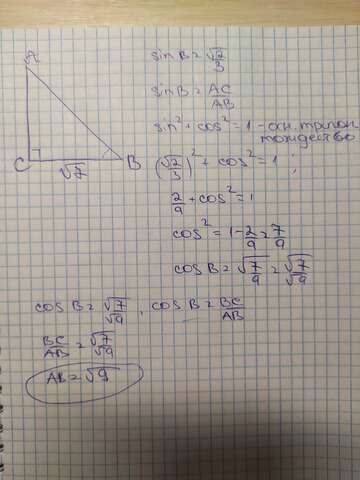 A
C
B
√7
sin B = √2/3
sin B = AC/AB
sin² + cos² = 1 - осн. тригон.
тождество
(√2/3)² + cos² = 1 ;
2/9 + cos² = 1
cos² = 1 - 2/9 = 7/9
cos B = √7/9 = √7/√9
cos B = √7/√9 , cos B = BC/AB
BC/AB = √7/√9
AB = √9